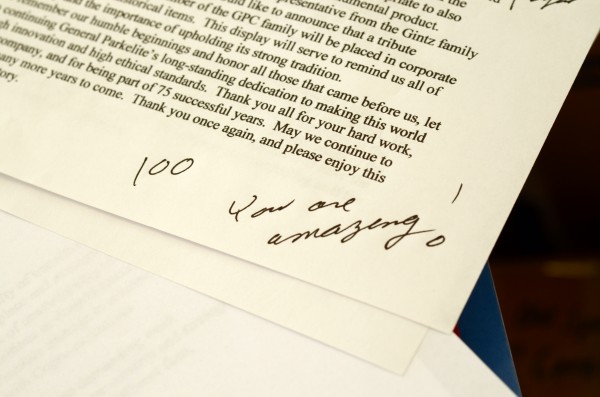 the
priate to also
umental product.
presentative from the Gintz family
ld like to announce that a tribute
mber of the GPC family will be placed in corporate
istorical items. This display will serve to remind us all of
nd the importance of upholding its strong tradition.
remember our humble beginnings and honor all those that came before us, let
continuing General Parkelite's long-standing dedication to making this world
h innovation and high ethical standards. Thank you all for your hard work,
ompany, and for being part of 75 successful years. May we continue to
any more years to come. Thank you once again, and please enjoy this
ory.
100
You are
amazeng !